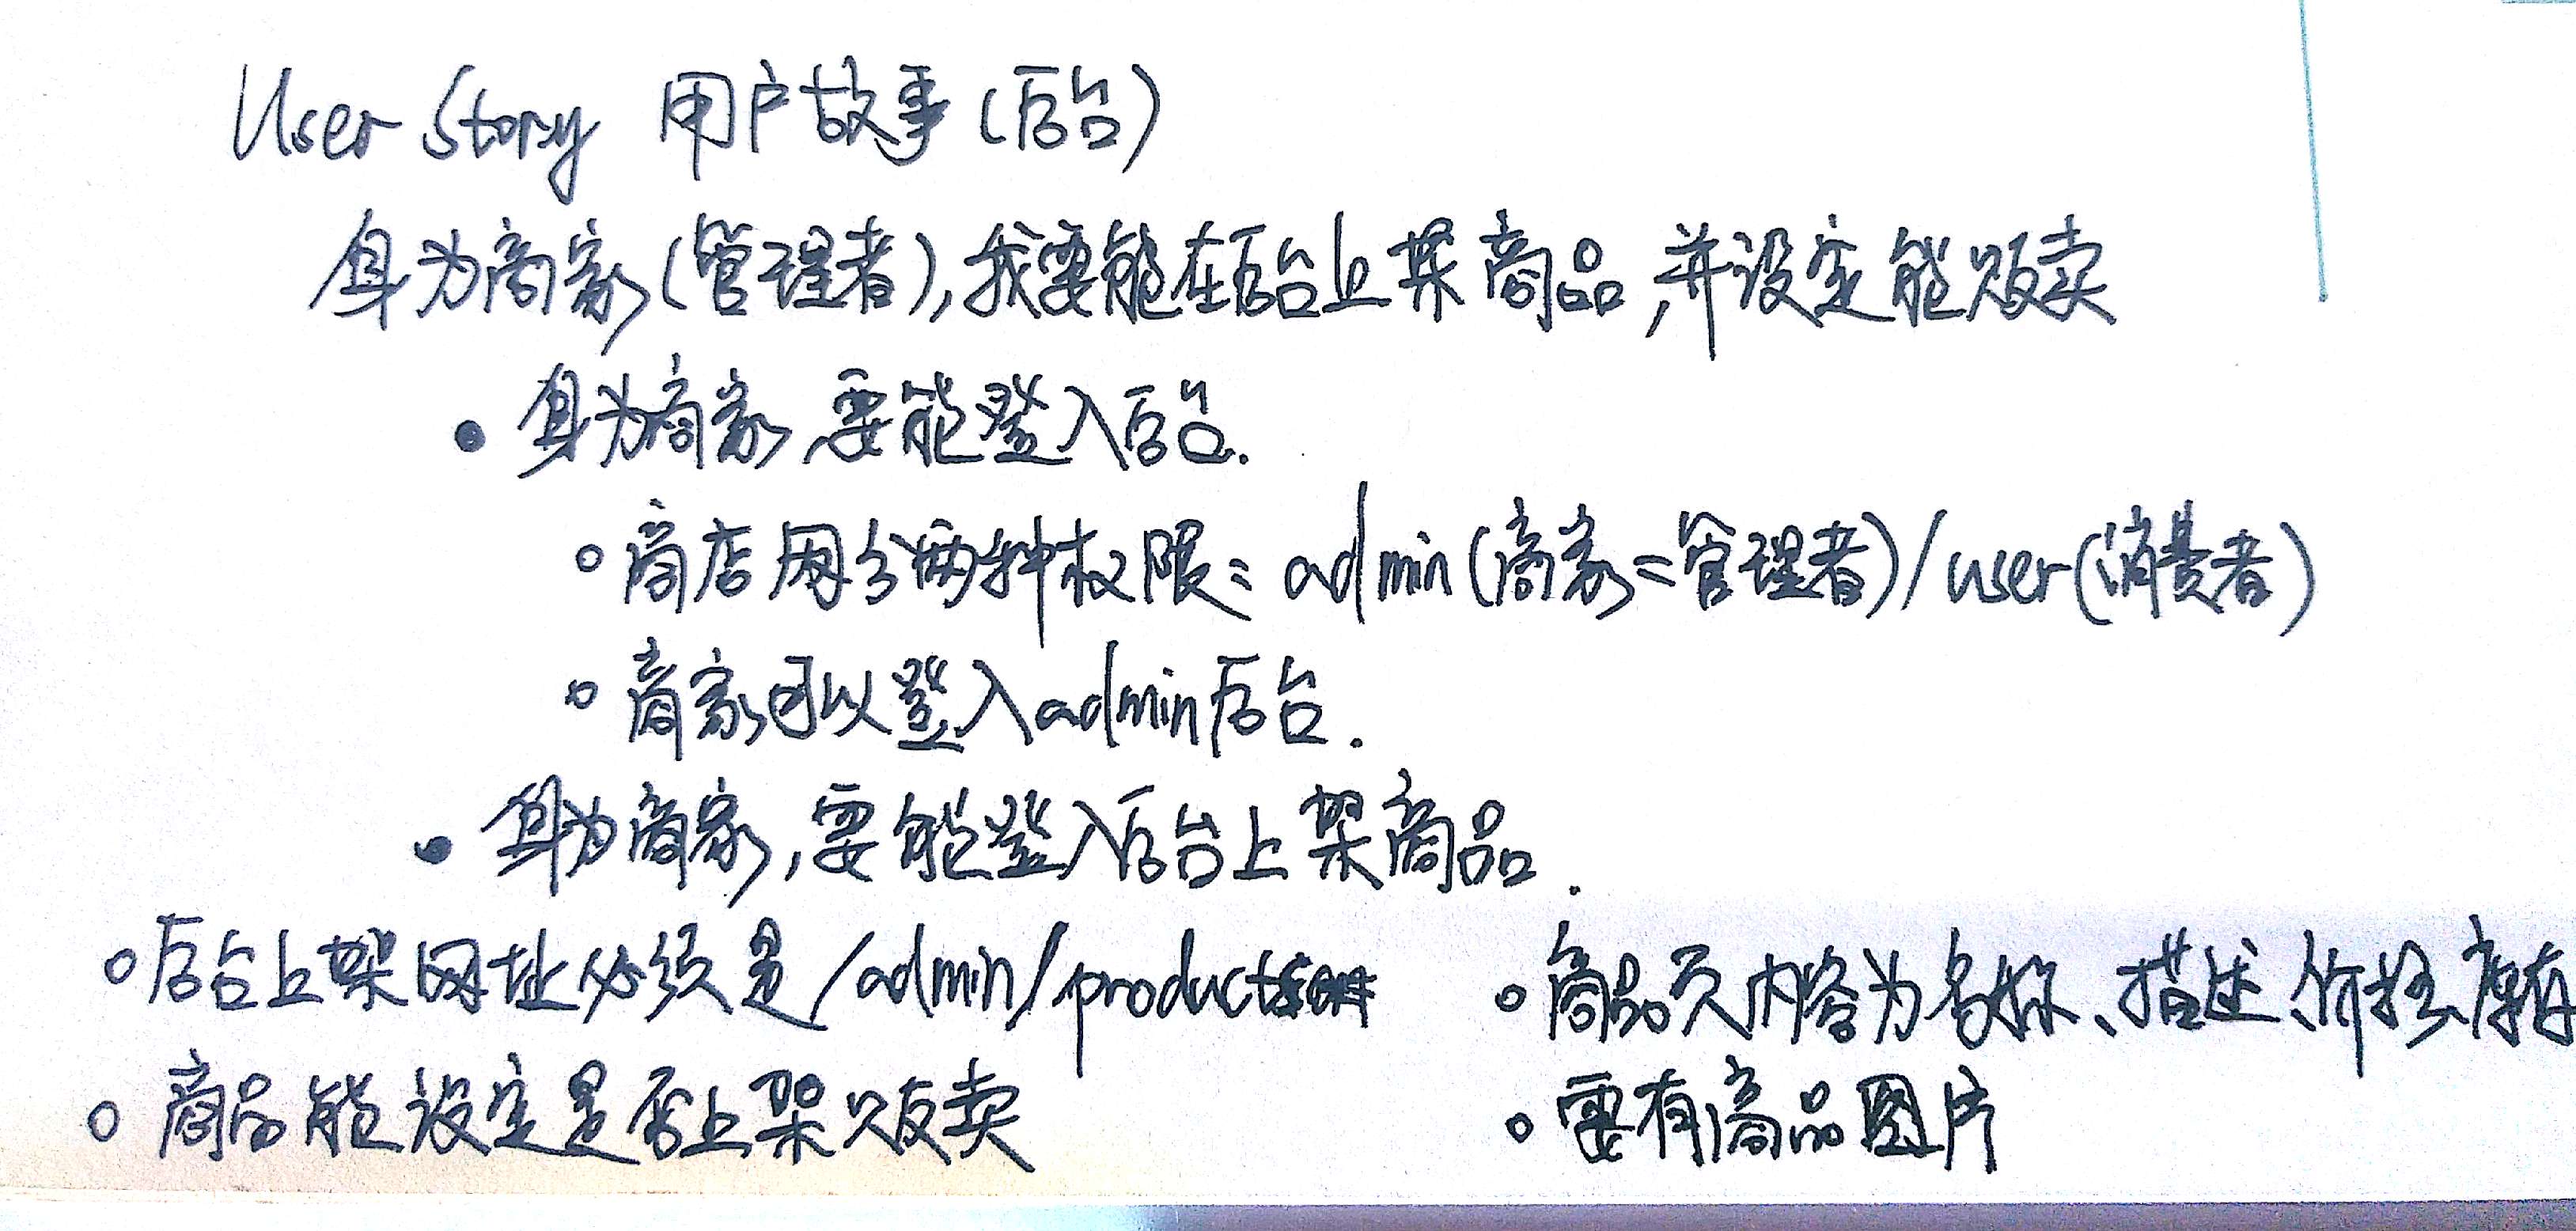 User Story 用户故事(后台)
身为商家(管理者),我要能在后台上架商品,并设定能贩卖
• 身为商家,要能登入后台.
○ 商店用分两种权限: admin(商家=管理者)/user(消费者)
○ 商家可以登入admin后台.
• 身为商家,要能登入后台上架商品.
○ 后台上架网址必须是/admin/products
○ 商品页内容为名称、描述、价格、库存
○ 商品能设定是否上架贩卖
○ 要有商品图片